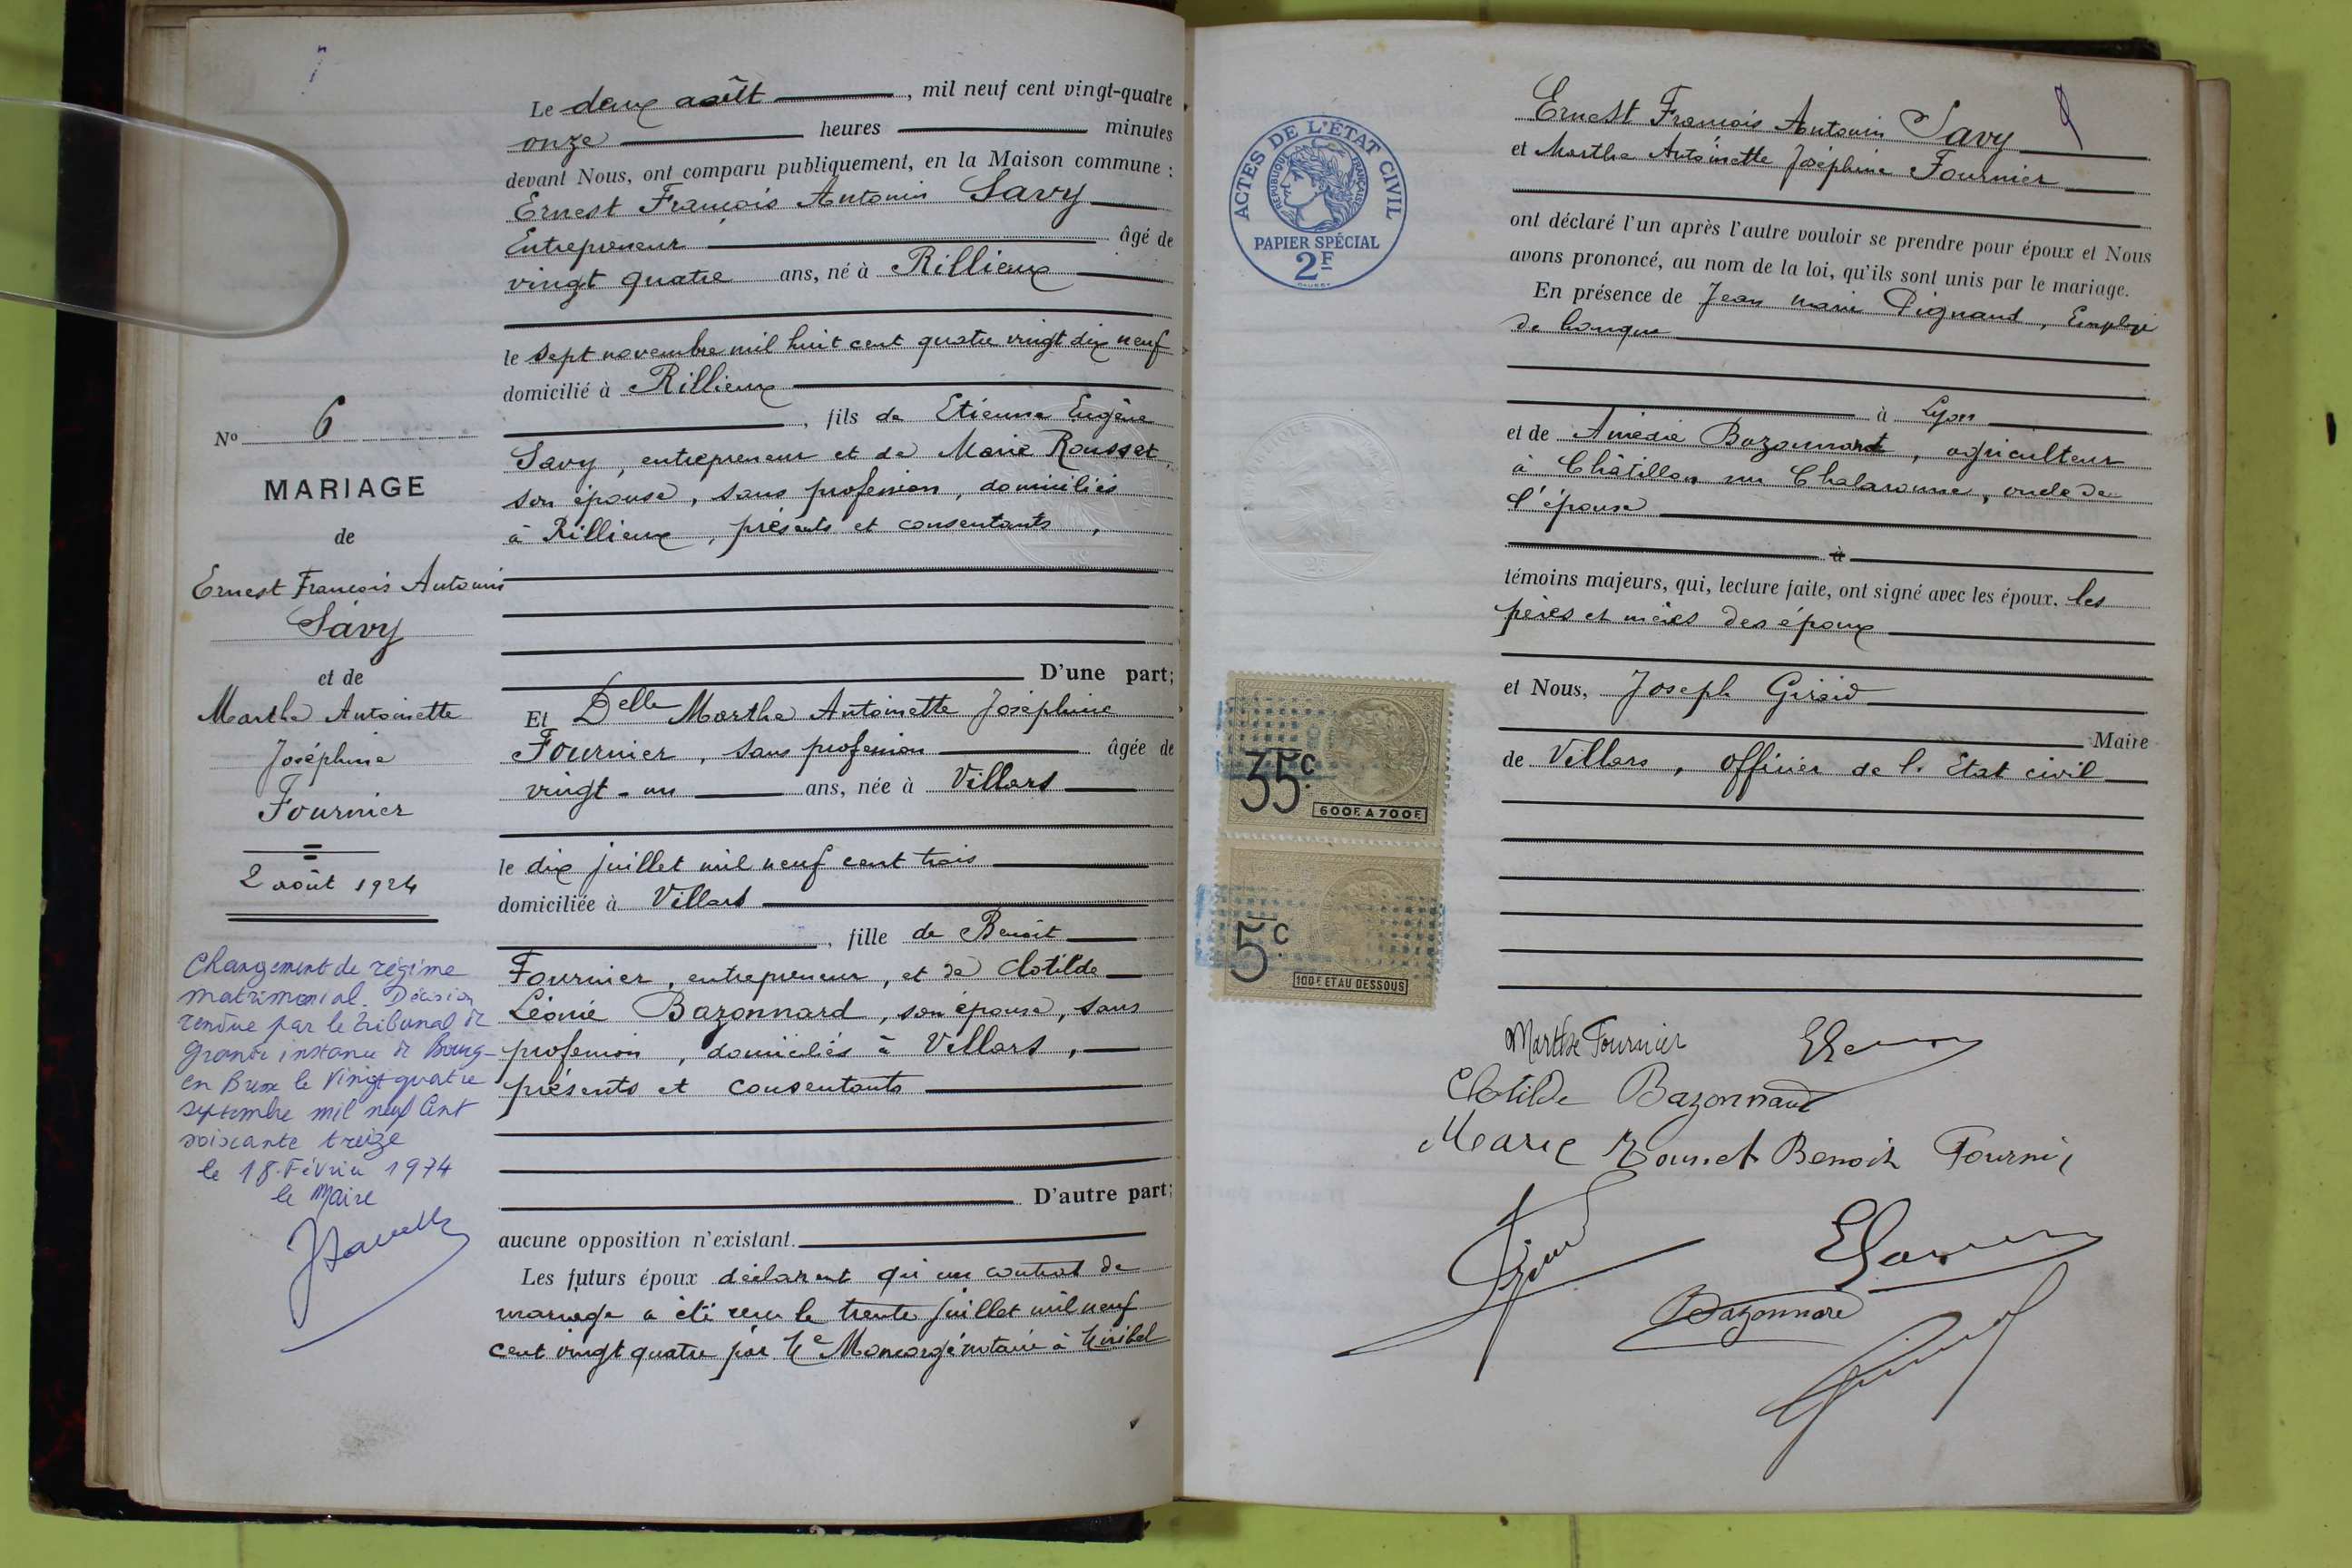 Le deux août, mil neuf cent vingt-quatre
onze heures minutes
devant Nous, ont comparu publiquement, en la Maison commune :
Ernest François Antonin Savy
Entrepreneur âgé de
vingt quatre ans, né à Rillieux
le sept novembre mil huit cent quatre vingt dix neuf
domicilié à Rillieux
, fils de Etienne Eugène
Savy, entrepreneur et de Marie Rousset,
son épouse, sans profession, domiciliés
à Rillieux, présents et consentants,
D'une part;
Et Delle Marthe Antoinette Joséphine
Fournier, sans profession âgée de
vingt-un ans, née à Villars
le dix juillet mil neuf cent trois
domiciliée à Villars
, fille de Benoit
Fournier, entrepreneur, et de Clotilde
Léonie Bazonnard, son épouse, sans
profession, domiciliés à Villars,
présents et consentants
D'autre part;
aucune opposition n'existant.
Les futurs époux déclarent qu'un contrat de
mariage a été reçu le trente juillet mil neuf
cent vingt quatre par Me Moncorgé notaire à Miribel
No 6
MARIAGE
de
Ernest François Antonin
Savy
et de
Marthe Antoinette
Joséphine
Fournier
2 août 1924
Changement de régime
matrimonial. Décision
rendue par le tribunal de
grande instance de Bourg-
en Bresse le vingt quatre
septembre mil neuf cent
soixante treize
le 18 Février 1974
le Maire
ACTES DE L'ÉTAT CIVIL
RÉPUBLIQUE FRANÇAISE
PAPIER SPÉCIAL
2F
Ernest François Antonin Savy
et Marthe Antoinette Joséphine Fournier
ont déclaré l'un après l'autre vouloir se prendre pour époux et Nous
avons prononcé, au nom de la loi, qu'ils sont unis par le mariage.
En présence de Jean Marie Pignaud, Employé
de banque
à Lyon
et de Amédée Bazonnard, agriculteur
à Châtillon sur Chalaronne, oncle de
l'épouse
à
témoins majeurs, qui, lecture faite, ont signé avec les époux. les
pères et mères des époux
et Nous, Joseph Giraud
Maire
de Villars, officier de l'Etat civil
35c
600F. A 700F.
5c
100F. ET AU DESSOUS
Marthe Fournier
Clotilde Bazonnard
Marie Rousset Benoit Fournier
Bazonnard